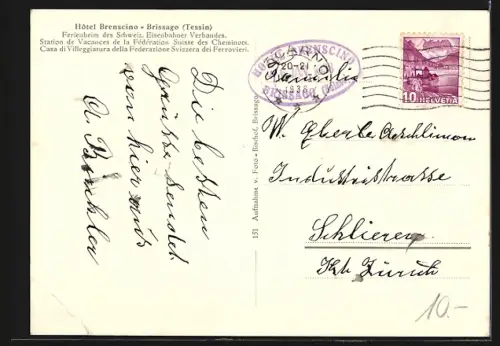 Hôtel Brenscino - Brissago (Tessin)
Ferienheim des Schweiz. Eisenbahner Verbandes.
Station de Vacances de la Fédération Suisse des Cheminots.
Casa di Villeggiatura della Federazione Svizzera dei Ferrovieri.
Die besten
Grüsse sendet
von hier aus
A.
151 Aufnahme v. Foto-Bischof, Brissago
LOCARNO
20-21
1936
HOTEL BRENSCINO
BRISSAGO
10 HELVETIA
Familie
W. Eberle Aeschlimann
Industriestrasse
Schlieren
Kt. Zürich
10.-